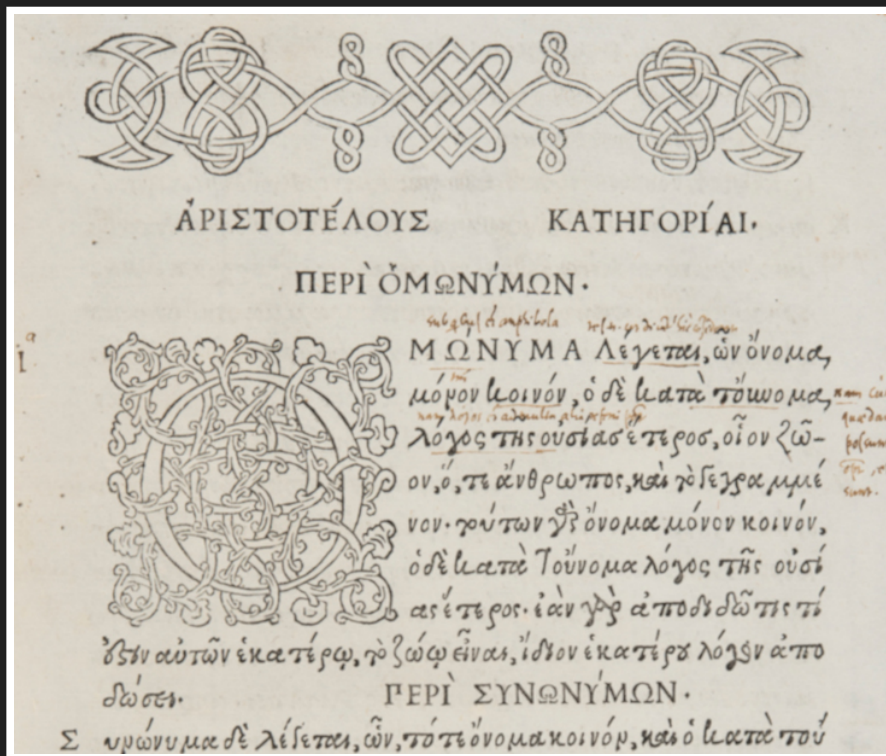 ἈΡΙΣΤΟΤΈΛΟΥΣ ΚΑΤΗΓΟΡΊΑΙ·
ΠΕΡῚ ὉΜΩΝΎΜΩΝ·
ΜΏΝΥΜΑ λέγεται, ὧν ὄνομα,
μόνον κοινόν, ὁ δὲ κατὰ τοὔνομα,
λόγος τῆς οὐσίας ἕτερος, οἷον ζῶ-
ον, ὅ, τε ἄνθρωπος, καὶ τὸ γεγραμμέ
νον· τούτων γὰρ ὄνομα μόνον κοινόν,
ὁ δὲ κατὰ τοὔνομα λόγος τῆς οὐσί
ας ἕτερος· ἐὰν γὰρ ἀποδιδῶ τις τί
ἐστιν αὐτῶν ἑκατέρῳ, τὸ ζώῳ εἶναι, ἴδιον ἑκατέρου λόγον ἀπο
δώσει· ΠΕΡῚ ΣΥΝΩΝΎΜΩΝ·
Συνώνυμα δὲ λέγεται, ὧν, τό τε ὄνομα κοινόν, καὶ ὁ κατὰ τοὔ